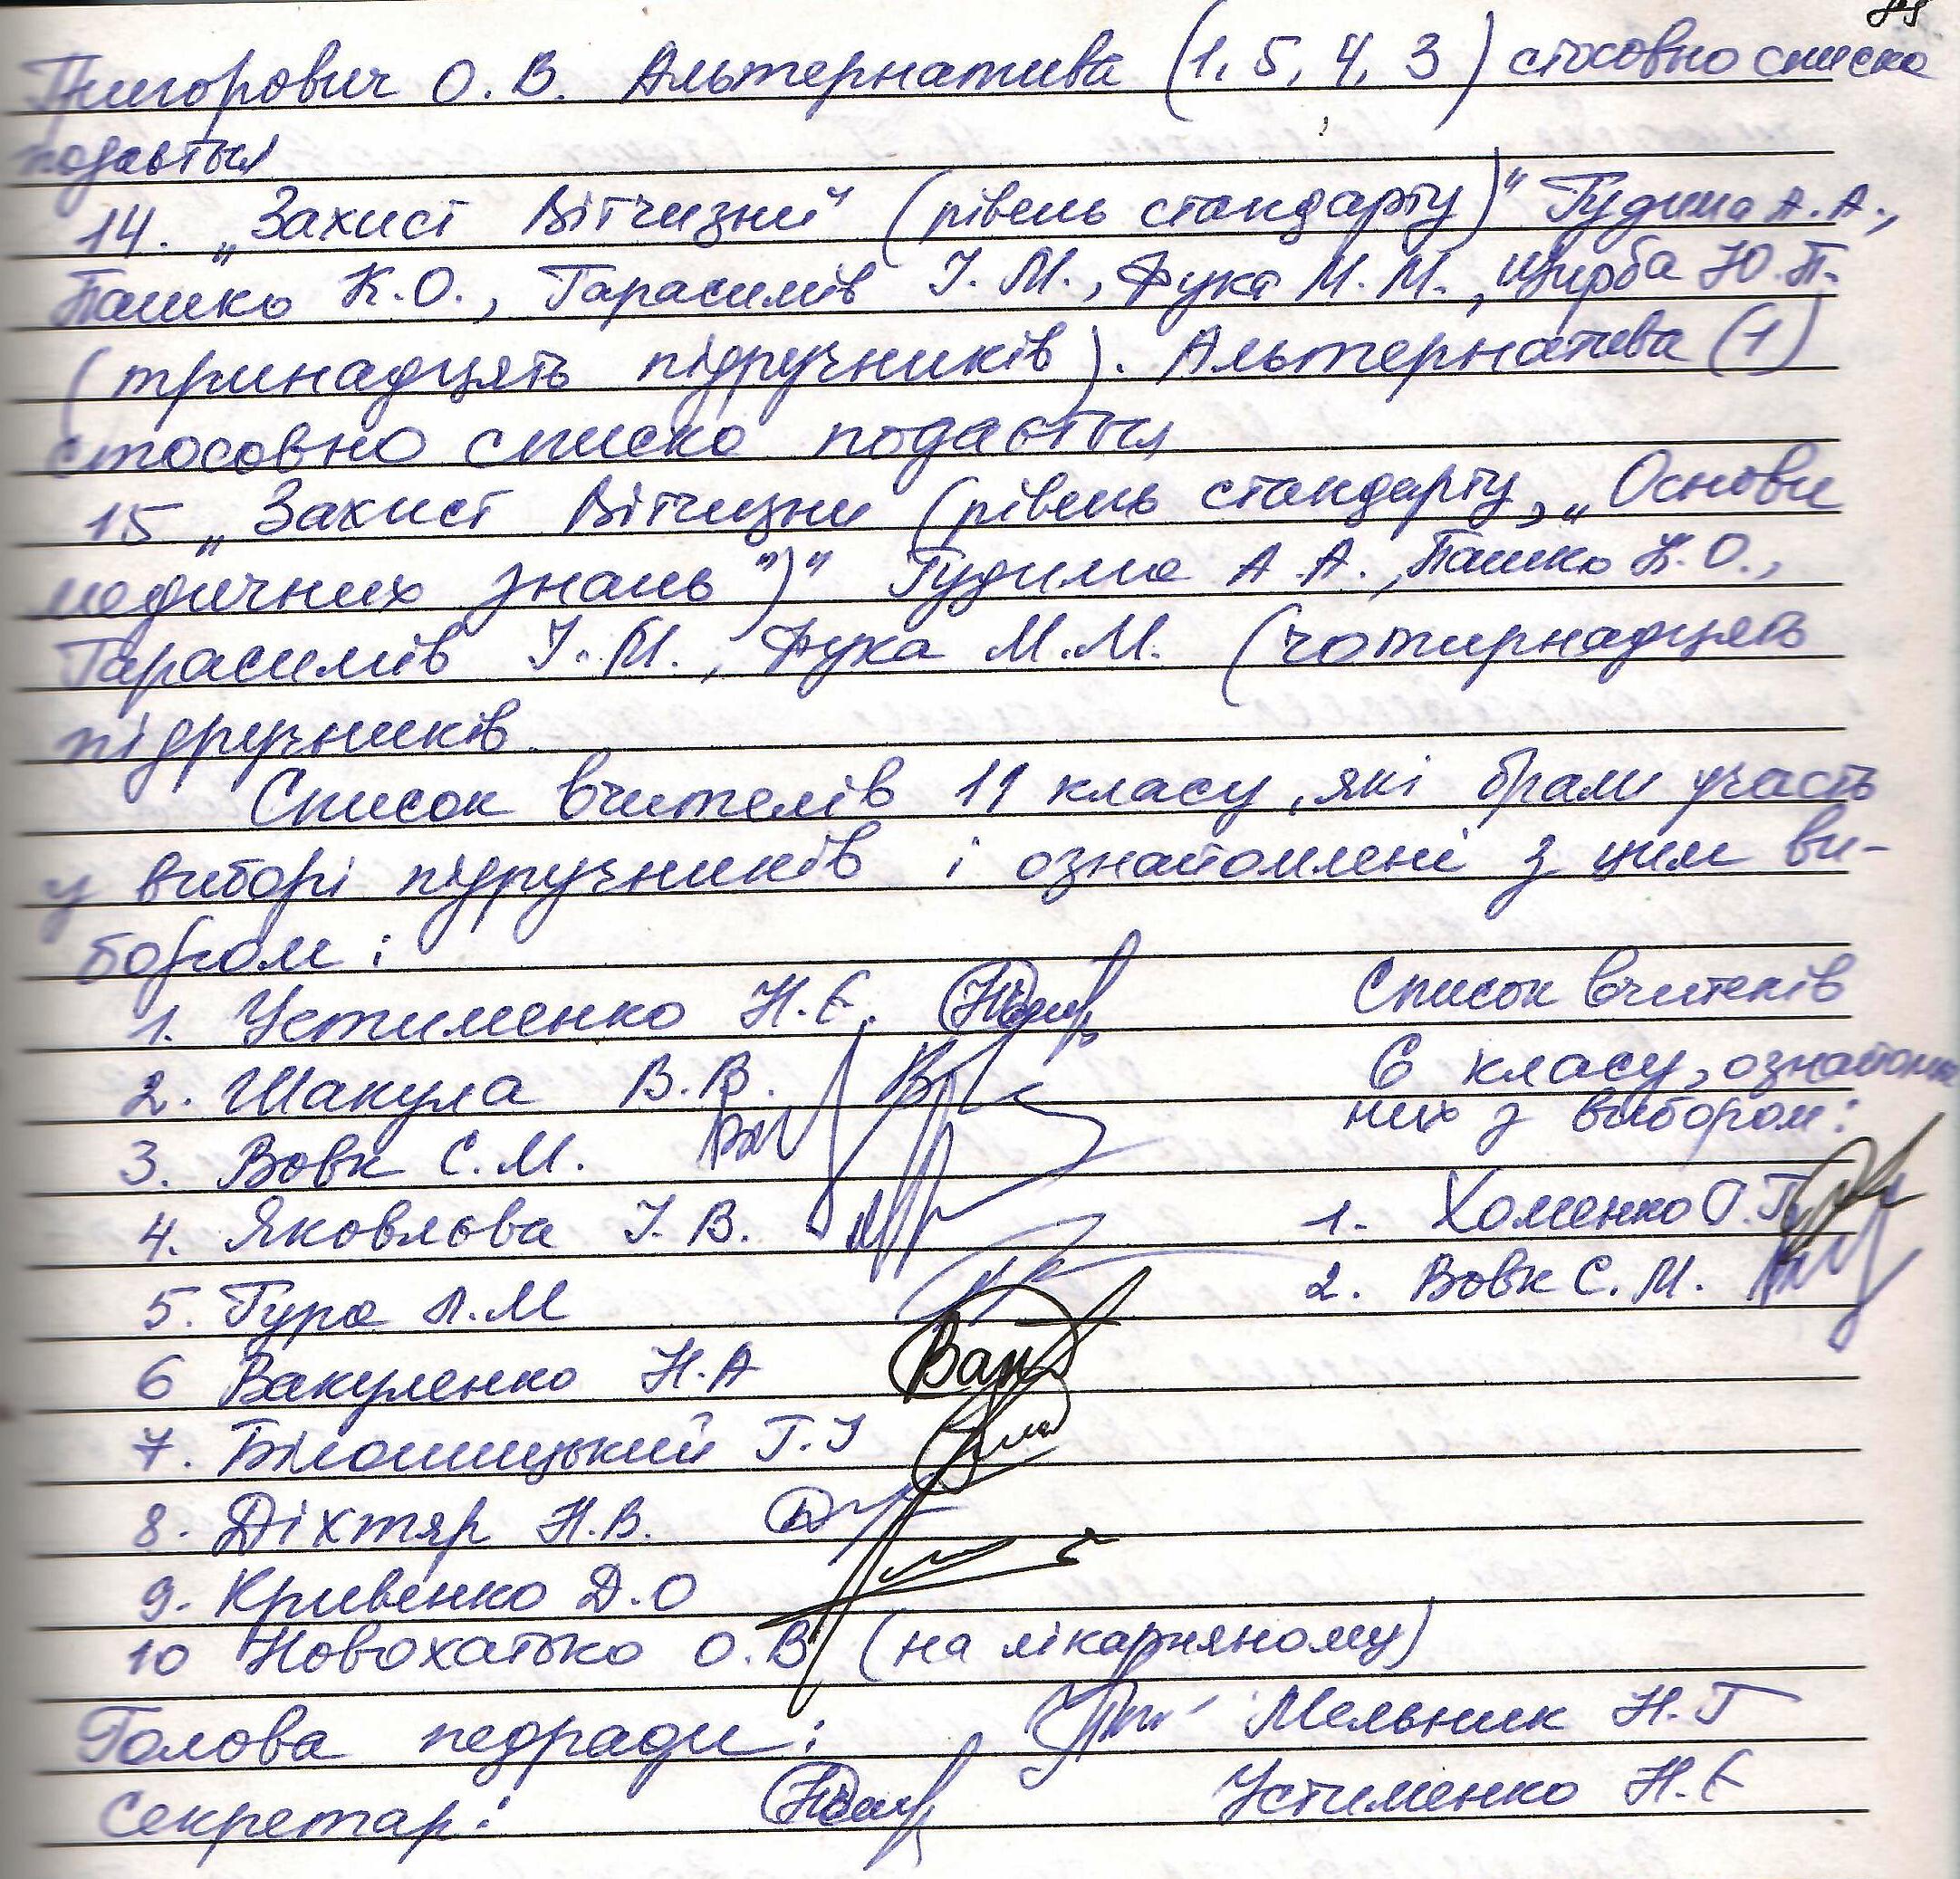 Григорович О. В. Альтернатива (1, 5, 4, 3) стосовно списка
подається
14. „Захист Вітчизни" (рівень стандарту)" Гудима А. А.,
Пашко К.О., Гарасимів І. М., Фука М. М., Щирба Ю. П.
(тринадцять підручників). Альтернатива (1)
стосовно списка подається
15 „Захист Вітчизни (рівень стандарту, „Основи
медичних знань")" Гудима А. А., Пашко К. О.,
Гарасимів І. М., Фука М.М. (чотирнадцять
підручників.
Список вчителів 11 класу, які брали участь
у виборі підручників і ознайомлені з цим ви-
бором:
1. Устименко Н.Є.
2. Шакула В.В.
3. Вовк С.М.
4. Яковлєва І. В.
5. Гура Л.М
6 Вакуленко Н.А
7. Білошицький Г.І
8. Діхтяр Н.В.
9. Кривенко Д.О
10 Новохатько О.В (на лікарняному)
Список вчителів
6 класу, ознайомле
них з вибором:
1. Хоменко О.Г.
2. Вовк С. М.
Голова педради: Мельник Н.Г
Секретар: Устименко Н.Є